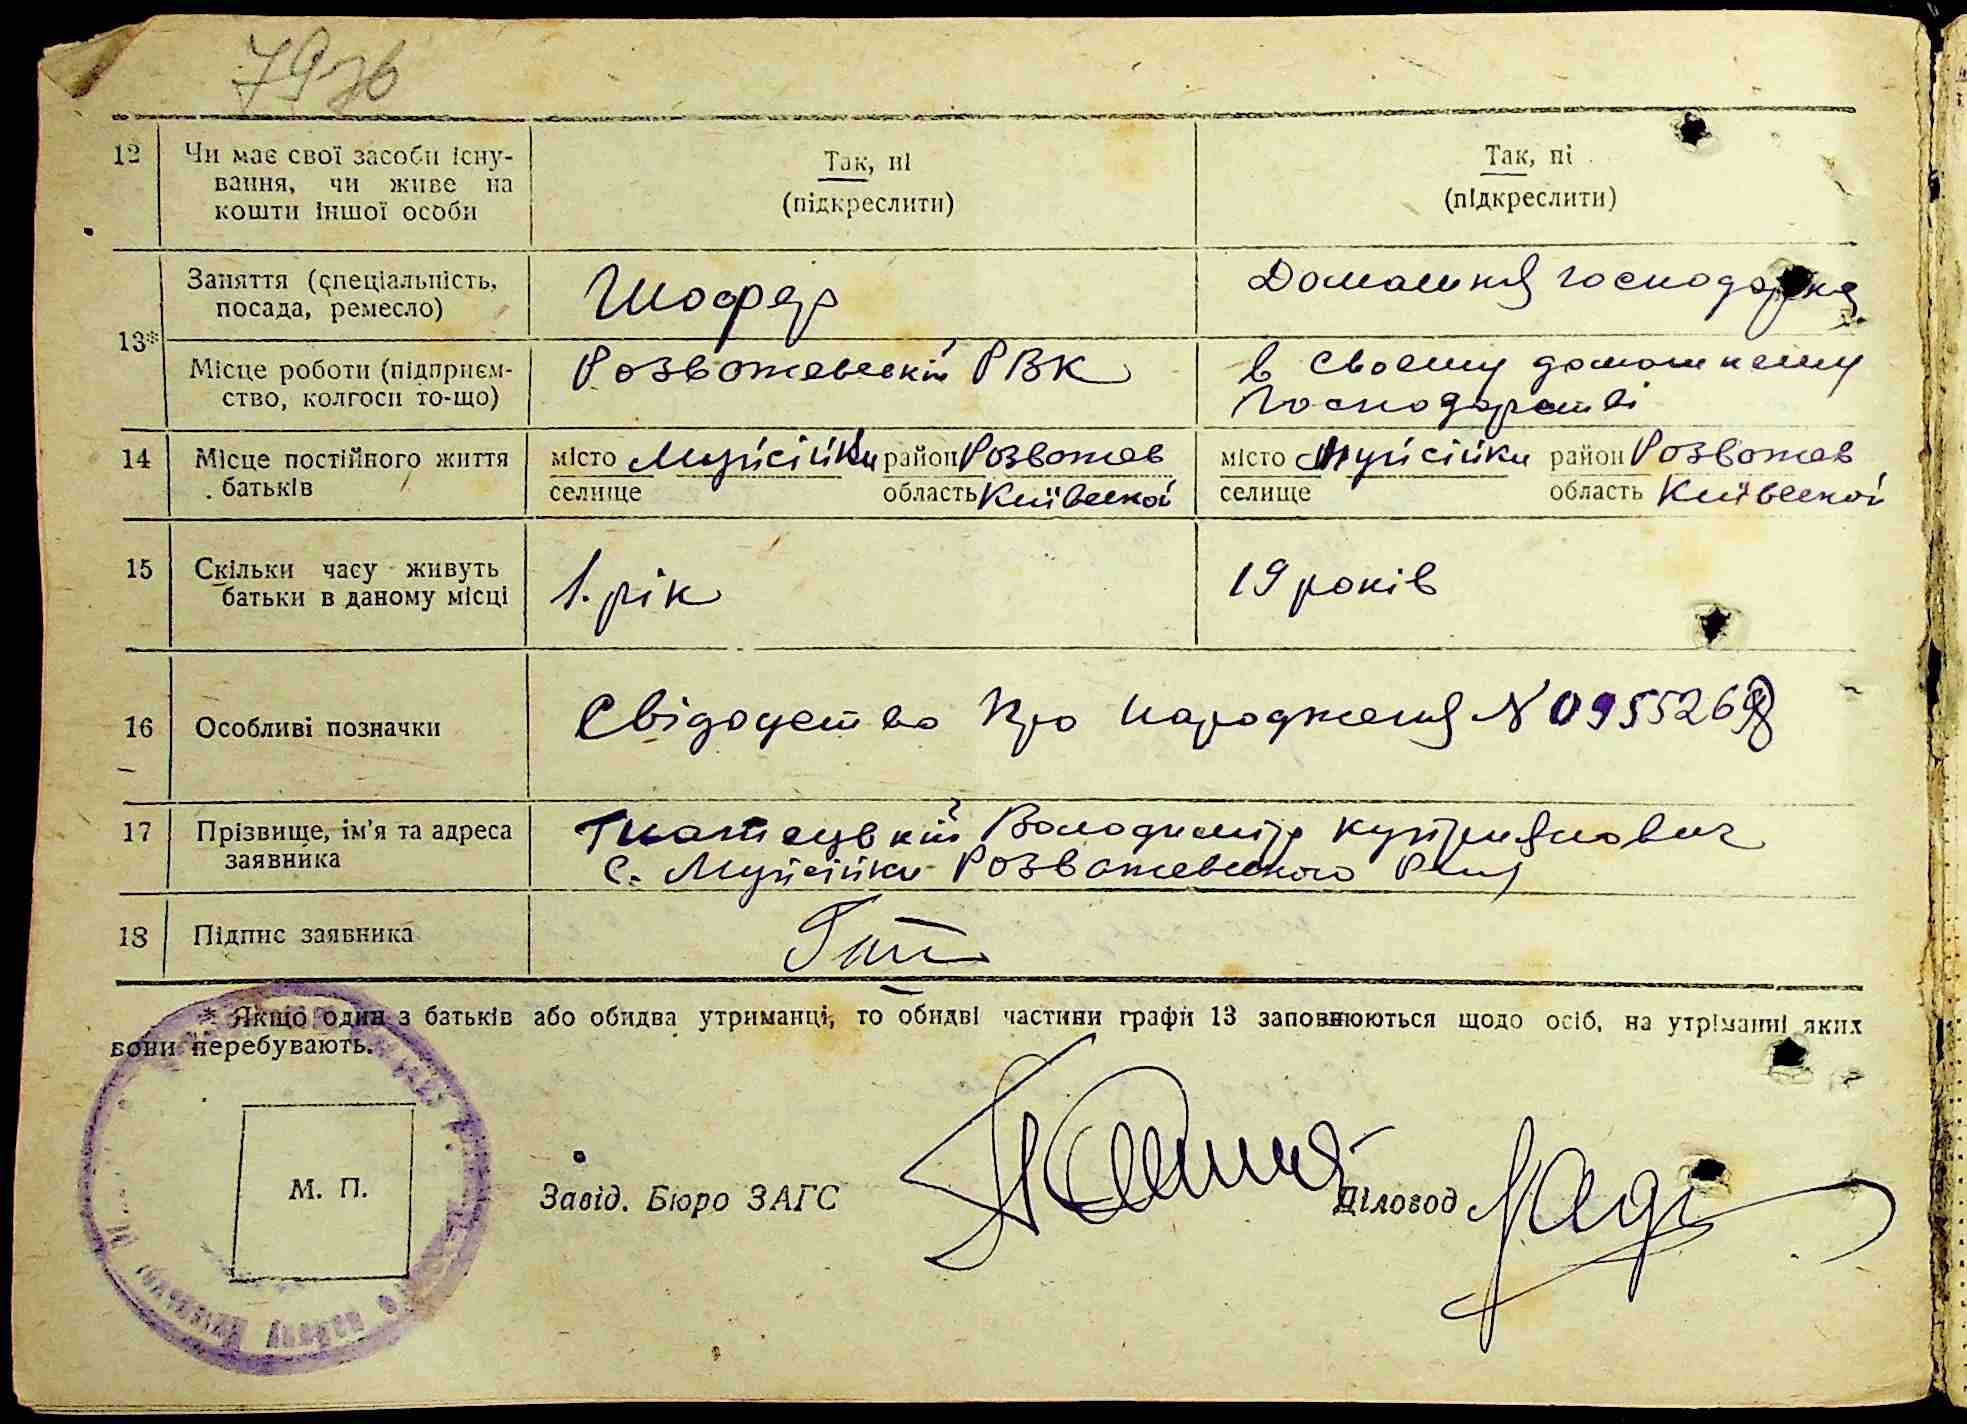 79зв
12 Чи має свої засоби існу-
вання, чи живе на
кошти іншої особи
Так, ні
(підкреслити)
Так, ні
(підкреслити)
13*
Заняття (спеціальність,
посада, ремесло)
Шофер
Домашня господарка
Місце роботи (підприєм-
ство, колгосп то-що)
Розважевський РВК
в своєму домашнему
господарстві
14 Місце постійного життя
батьків
місто Мусійки район Розважев
селище область Київської
місто Мусійки район Розважев
селище область Київської
15 Скільки часу живуть
батьки в даному місці
1. рік
19 років
16 Особливі позначки
Свідоцтво про народження N 0955268
17 Прізвище, ім'я та адреса
заявника
Володимір Купріянович
с. Мусійки Розважевського
18 Підпис заявника
* Якщо один з батьків або обидва утриманці, то обидві частини графи 13 заповнюються щодо осіб, на утриманні яких
вони перебувають.
М. П.
Завід. Бюро ЗАГС
Діловод